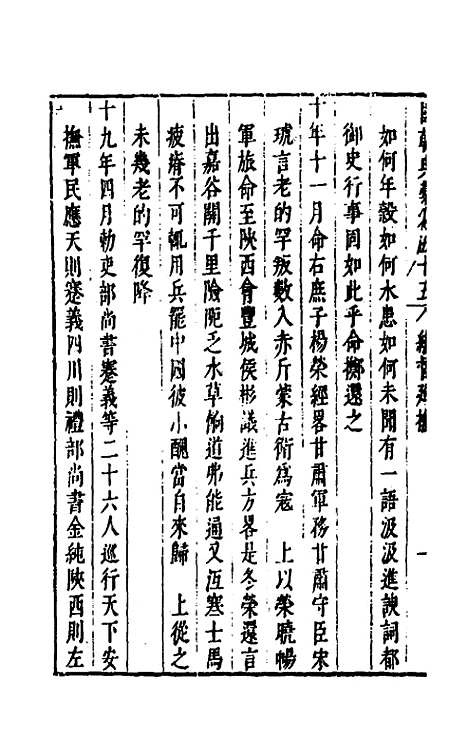 國朝典彙卷五十五　總督巡撫　一
如何年穀如何水患如何未聞有一語汲汲進諛詞都
御史行事固如此乎命擲還之
十年十一月命右庶子楊榮經畧甘肅軍務甘肅守臣宋
琥言老的罕叛數入赤斤蒙古衛為寇　上以榮曉暢
軍旅命至陝西會豐城侯彬議進兵方畧是冬榮還言
出嘉谷關千里險阨乏水草餉道弗能通又沍寒士馬
疲瘠不可輒用兵罷中國彼小醜當自來歸　上從之
未幾老的罕復降
十九年四月勅吏部尚書蹇義等二十六人巡行天下安
撫軍民應天則蹇義四川則禮部尚書金純陝西則左